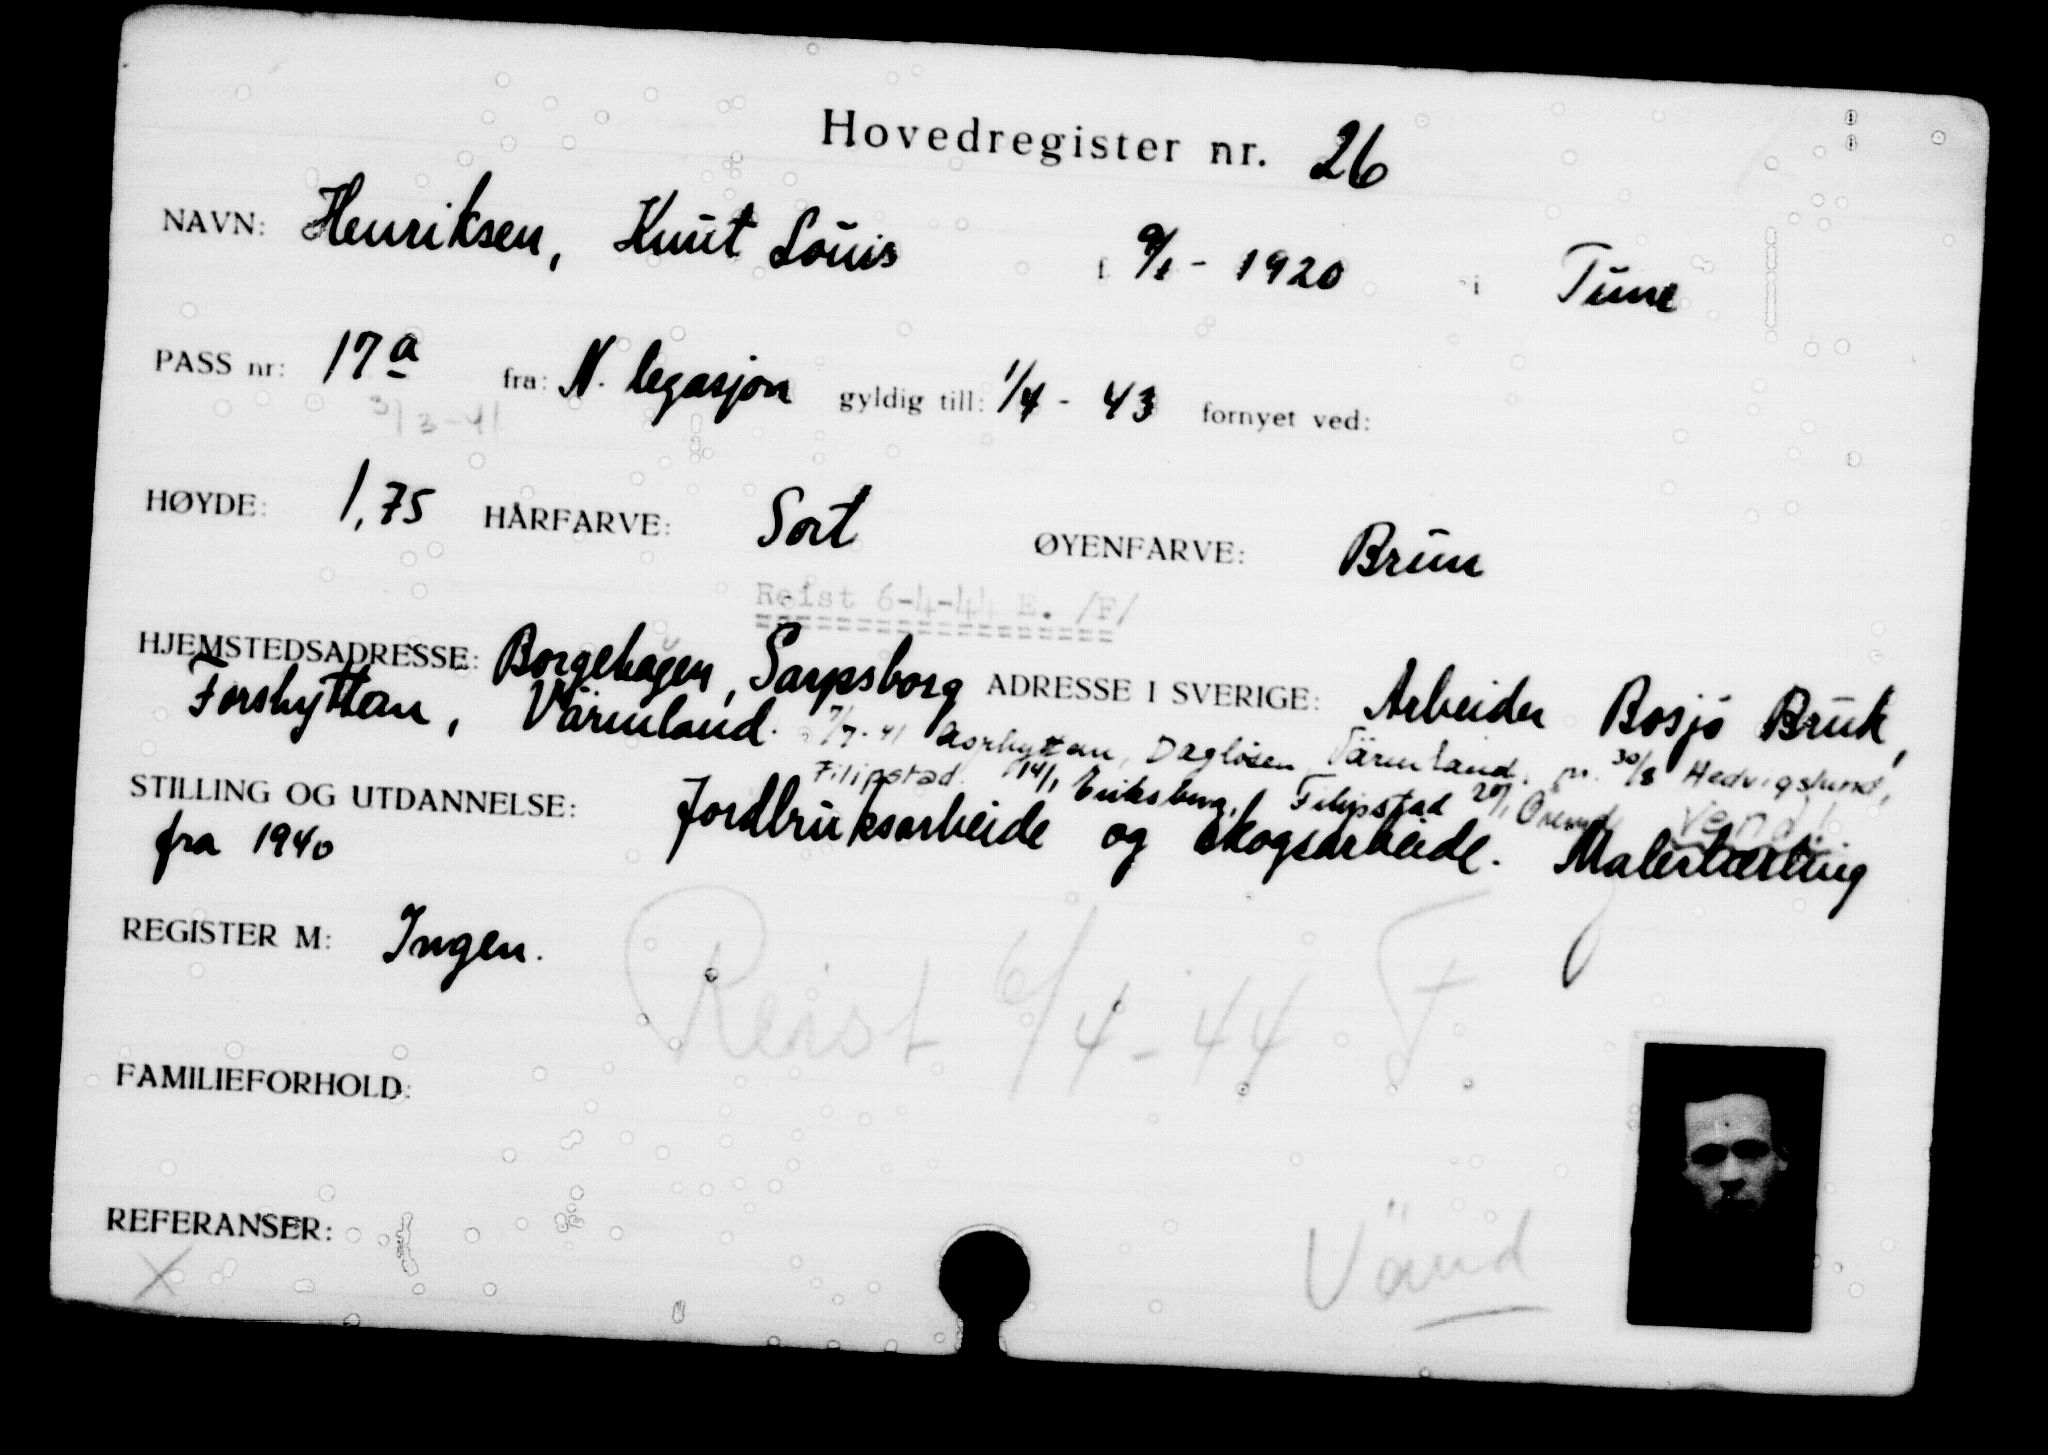 Hovedregister nr. 26
NAVN: Henriksen, Knut Louis f 9/1 - 1920 i Tune
PASS nr: 17a fra: N. legasjon gyldig till: 1/4 - 43 fornyet ved:
3/3-41
HØYDE: 1,75 HÅRFARVE: Sort ØYENFARVE: Brun
Reist 6-4-44 E. /F/
HJEMSTEDSADRESSE: Borgehagen, Sarpsborg ADRESSE I SVERIGE: Arbeider Bosjö Bruk,
Forshyttan, Värmland. 7/7-41 Daglösen, Värmland. 30/8 Hedvigslund,
Filipstad. 14/1 Eriksberg, Filipstad 20/1 Vend!
STILLING OG UTDANNELSE: Jordbruksarbeide og skogsarbeide. Malerlærling
fra 1940
REGISTER M: Ingen.
Reist 6/4-44 F.
FAMILIEFORHOLD:
REFERANSER:
Vänd
X